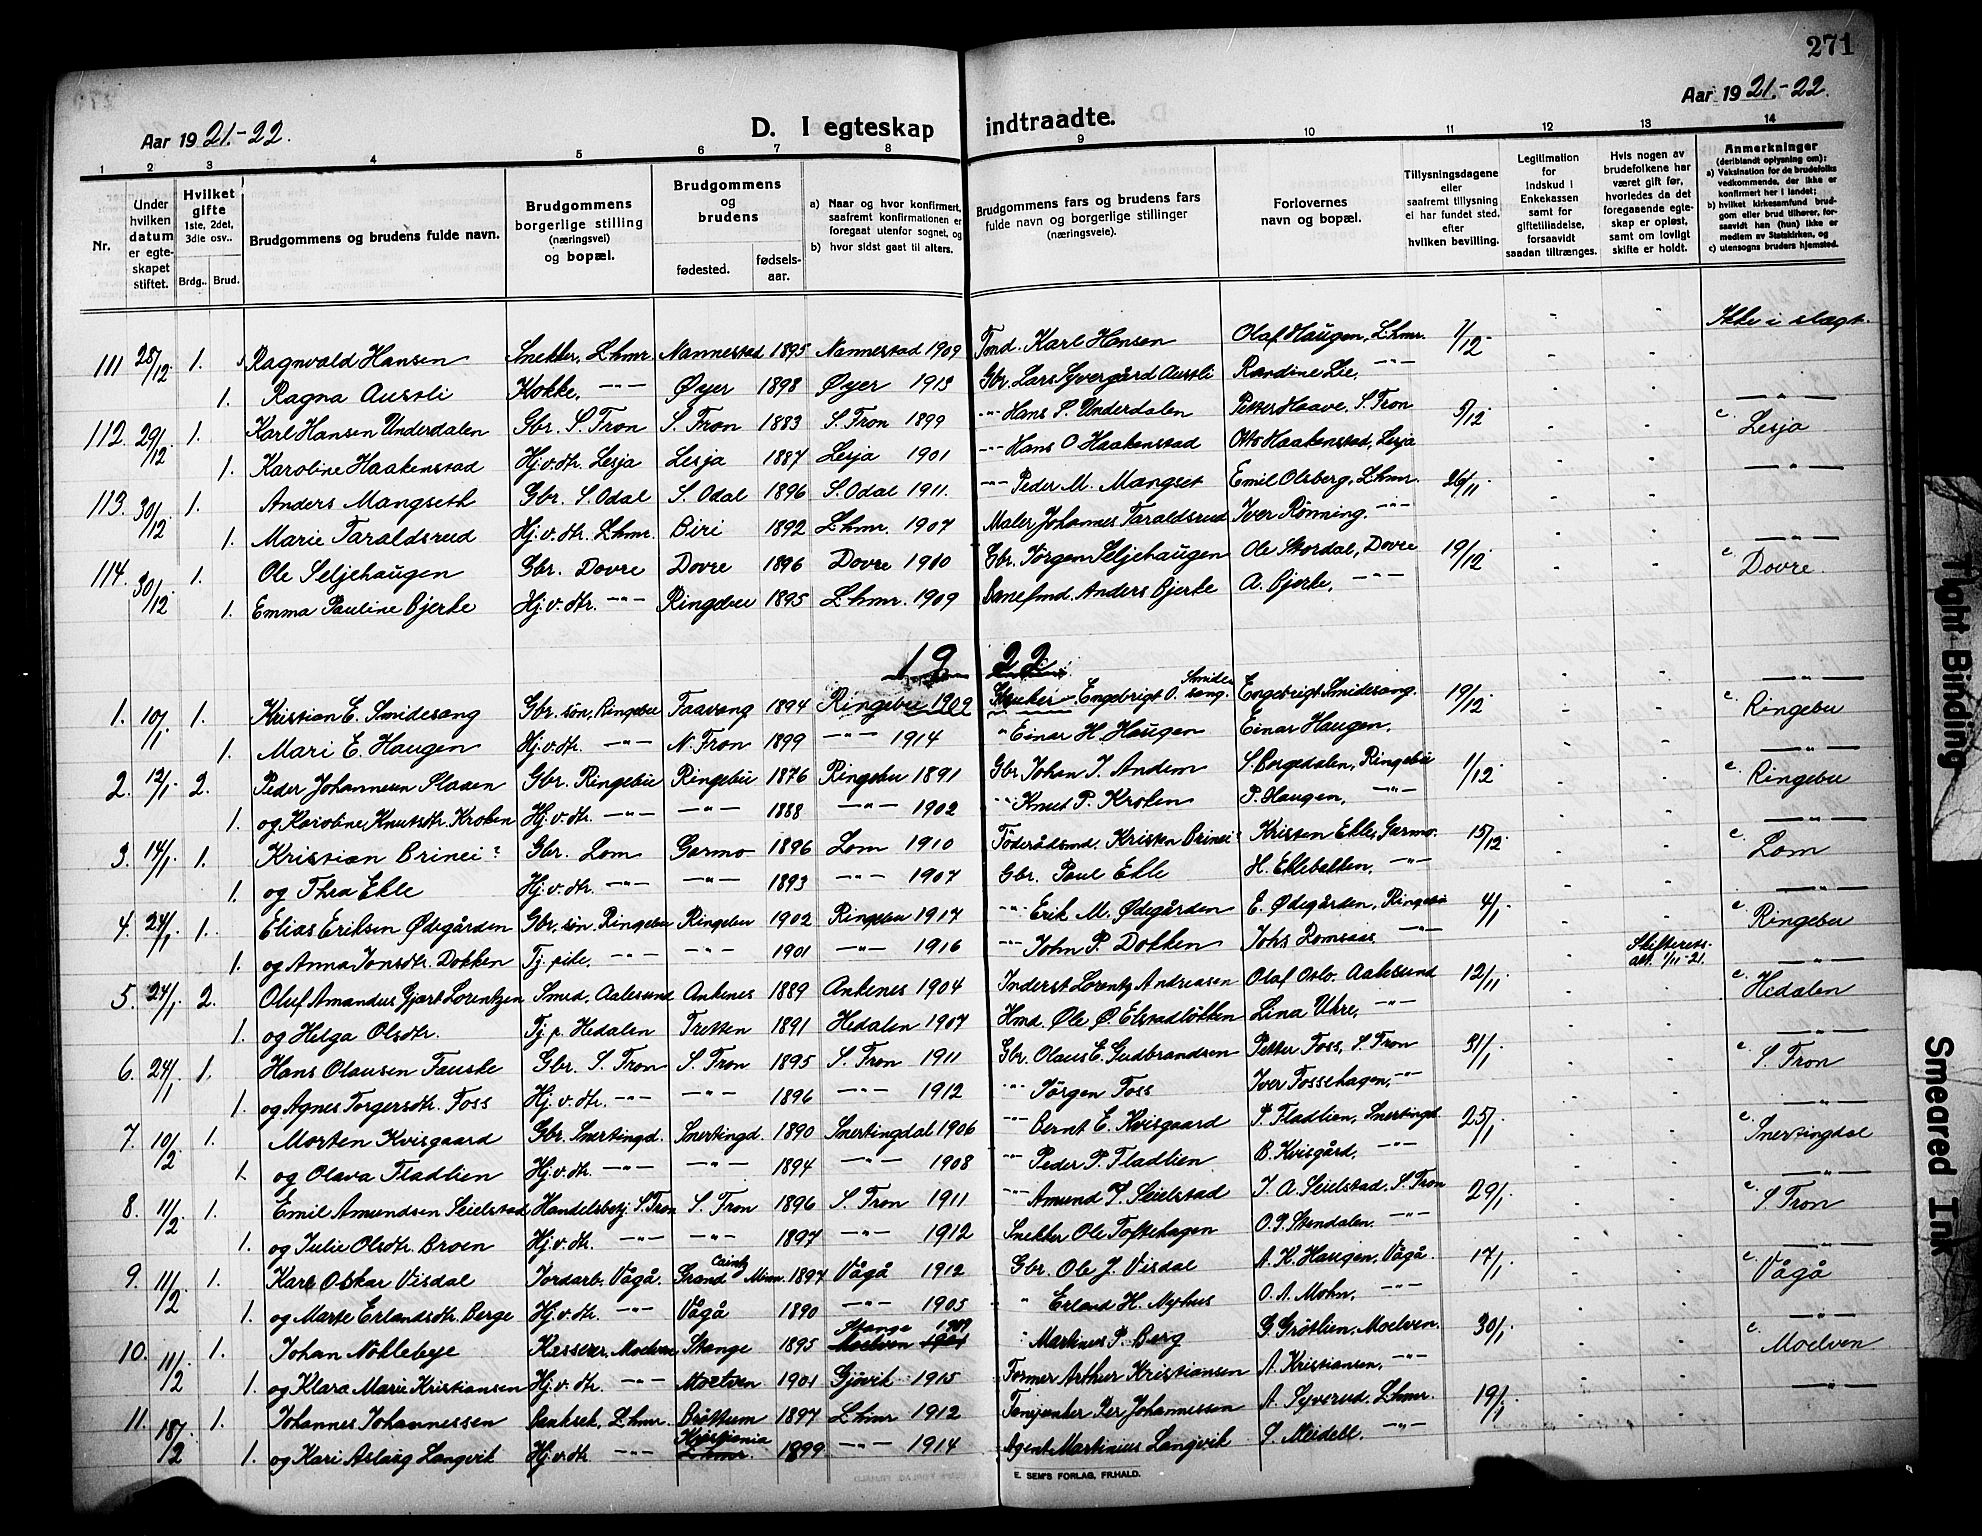 271
Aar 1921.-22.
D. I egteskap indtraadte.
Aar 1921.-22.
1 2 3 4 5 6 7 8 9 10 11 12 13 14
Nr.
Under hvilken datum er egteskapet stiftet.
Hvilket gifte
1ste, 2det, 3die osv..
Brdg.. Brud.
Brudgommens og brudens fulde navn.
Brudgommens borgerlige stilling (næringsvei) og bopæl.
Brudgommens og brudens
fødested.
fødselsaar.
a) Naar og hvor konfirmert, saafremt konfirmationen er foregaat utenfor sognet, og
b) hvor sidst gaat til alters.
Brudgommens fars og brudens fars fulde navn og borgerlige stillinger (næringsveie).
Forlovernes navn og bopæl.
Tillysningsdagene eller saafremt tillysning ei har fundet sted, efter hvilken bevilling.
Legitimation for indskud i Enkekassen samt for giftetilladelse, forsaavidt saadan tiltrænges.
Hvis nogen av brudefolkene har været gift før, hvorledes da det foregaaende egteskap er opløst, samt om lovligt skifte er holdt.
Anmerkninger
(deriblandt oplysning om):
a) Vaksination for de brudefolks vedkommende, der ikke er konfirmert her i landet;
b) hvilket kirkesamfund brudgom eller brud tilhører, forsaavidt han (hun) ikke er medlem av Statskirken, og
c) utensogns bruders hjemsted.
111 28/12. 1. Ragnvald Hansen Snekker, Lhmr. Nannestad 1895 Nannestad 1909 Tond. Karl Hansen Olaf Haugen, Lhmr. 7/12 - - Ikke i slægt.
1. Ragna Austli Kokke, -"- Øyer 1898 Øyer 1913 Gbr. Lars Syvergård Austli Randine Lie, -"- - -
112. 29/12. 1. Karl Hansen Underdalen Gbr. S. Fron S. Fron 1883 S. Fron 1899 -"- Hans S. Underdalen Petter Haave, S. Fron 5/12 - - -"-
1. Karoline Haakenstad Hj.v.dtr. Lesja Lesja 1887 Lesja 1901 -"- Hans O Haakenstad Otto Haakenstad, Lesja - - c. Lesja
113. 30/12. 1. Anders Mangseth Gbr. S. Odal S. Odal 1896 S. Odal 1911. -"- Peder M. Mangset Emil Olsberg, Lhmr. 26/11. - - -"-
1. Marie Taraldsrud Hj.v.dtr. Lhmr. Biri 1892 Lhmr. 1907 Maler Johannes Taraldsrud Iver Rønning, -"- - -
114. 30/12. 1. Ole Seljehaugen Gbr. Dovre Dovre 1896 Dovre 1910 Gbr. Jørgen Seljehaugen Ole Stordal, Dovre 19/12. - - -"-
1. Emma Pauline Bjerke Hj.v.dtr. -"- Ringebu 1895 Lhmr. 1909 Banefmd. Anders Bjerke A. Bjerke, -"- - - c. Dovre.
1922.
1. 10/1. 1. Kristian E. Smidesang Gbr. søn, Ringebu Faavang 1894 Ringebu 1909 Engebrigt O. Smidesang. Engebrigt Smidesang. 19/12. - - -"-
1. Mari E. Haugen Hj.v.dtr. -"- N. Fron 1899 -"- 1914 " Einar H. Haugen Einar Haugen, - - c. Ringebu
2. 12/1. 2. Peder Johannesen Slaaen Gbr. Ringebu Ringebu 1876 Ringebu 1891 Gbr. Johan J. Andem S. Borgedalen, Ringebu 1/12. - - -"-
1. og Karoline Knutsdtr. Kroken Hj.v.dtr. -"- -"- 1888 -"- 1902 -"- Knud P. Kroken P. Haugen, -"- - - c. Ringebu
3. 14/1. 1. Kristian Brinei? Gbr. Lom Garmo 1896 Lom 1910 Føderådsmd. Kristen Brinei? Kristen Ekle, Garmo. 15/12. - - -"-
1. og Thea Ekle Hj.v.dtr. -"- -"- 1893 -"- 1907 Gbr. Paul Ekle H. Eklebakken, -"- - - c. Lom
4. 24/1. 1. Elias Eriksen Ødegården Gbr. søn Ringebu Ringebu 1902 Ringebu 1917 -"- Erik M. Ødegården E. Ødegården, Ringebu 4/1. - - -"-
1. og Anna Jonsdtr. Dokken Tj. pike, -"- -"- 1901 -"- 1916 -"- John P. Dokken Johs Romsaas -"- - - c. Ringebu
5. 24/1. 2. Oluf Amandus Gjært Lorentzen Smed, Aalesund Ankenes 1889 Ankenes 1904 Inderst Lorentz Andreasen Olaf Oslo. Aalesund 12/11. - Skifterets- att. 1/11-21. -"-
1. og Helga Olsdtr. Tj. p. Hedalen Tretten 1891 Hedalen 1907 Hmd. Ole O. Elstadløkken Lina Uhre, -"- - - c. Hedalen
6. 24/1. 1. Hans Olausen Fauske Gbr. S. Fron S. Fron 1895 S. Fron 1911 Gbr. Olaus E. Gudbrandsen Petter Foss, S. Fron 31/1. - - -"-
1. og Agnes Torgersdtr. Foss Hj.v.dtr. -"- -"- 1896 -"- 1912 -"- Jørgen Foss Iver Fossehagen, -"- - - c. S. Fron
7. 10/2 1. Morten Kvisgaard Gbr. Snertingd. Snertingd. 1890 Snertingdal 1906 -"- Bernt E. Kvisgaard P. Fladlien, Snertingd. 25/1. - - -"-
1. og Olava Fladlien Hj.v.dtr. -"- -"- 1894 -"- 1908 -"- Peder P. Fladlien B. Kvisgård, -"- - - c. Snertingdal
8. 11/2 1. Emil Amundsen Seielstad Handelsbetj. S. Fron S. Fron 1896 S. Fron 1911 -"- Amund T. Seielstad J. A. Seielstad, S. Fron 29/1. - - -"-
1. og Julie Olsdtr. Broen Hj.v.dtr. -"- -"- 1897 -"- 1912 Snekker Ole Toftehagen O. P. Stendalen. -"- - - c. S. Fron
9. 11/2 1. Karl Oskar Visdal Jordarb. Vågå. Grand 1897 Vågå 1912 Gbr. Ole J. Visdal A. K. Haugen, Vågå. 17/1. - - -"-
1. og Marte Erlandsdtr. Berge Hj.v.dtr. -"- Vågå 1890 -"- 1905 " Erland H. Nyhus O. A. Mohn, -"- - - c. Vågå
10. 11/2 1. Johan Nøklebye Kasserer, Moelven Stange 1895 Stange 1909 " Martinus P. Berg G. Grøtlien, Moelven. 30/1. - - -"-
1. og Klara Marie Kristiansen Hj.v.dtr. -"- Moelven 1901 Gjøvik 1915 Former Arthur Kristiansen A. Kristiansen, -"- - - c. Moelven
11. 18/2 1. Johannes Johannessen Lhmr. Brøttum 1897 Lhmr 1912 Per Johannessen A. Syverud, Lhmr. 19/1. - - -"-
1. og Kari Aslaug Langvik Hj.v.dtr. -"- Kristiania 1899 -"- 1914 Agent Martinius Langvik S. Meidell. -"-
E. SEM'S FORLAG, FR.HALD.
Tight Binding
Smeared Ink